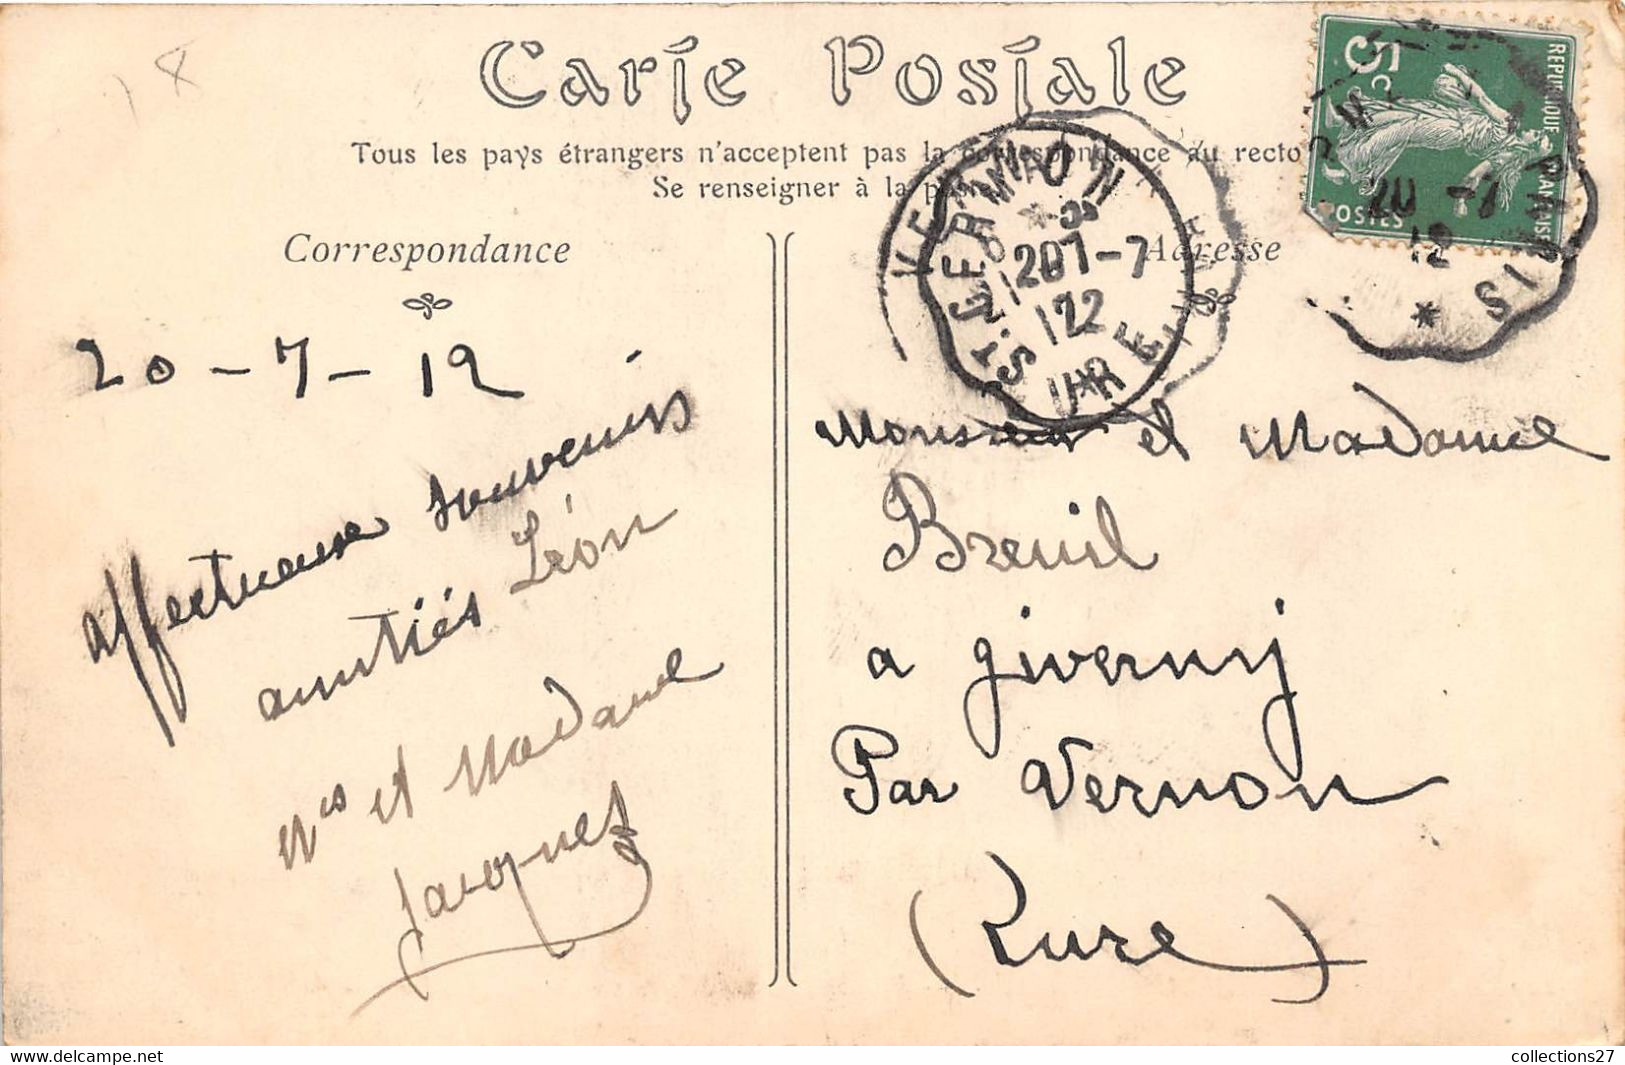 Carte Postale
Tous les pays étrangers n'acceptent pas la correspondance au recto
Se renseigner à la
Correspondance
Adresse
5c
REPUBLIQUE FRANÇAISE
POSTES
PARIS
20 -7
12
VERNON
EURE
20 7-7
12
20-7-12
affectueuse souvenirs
amitiés Léon
et Madame
Jacques
Monsieur et Madame
Breuil
a giverny
Par Vernon
(Eure)
collections27